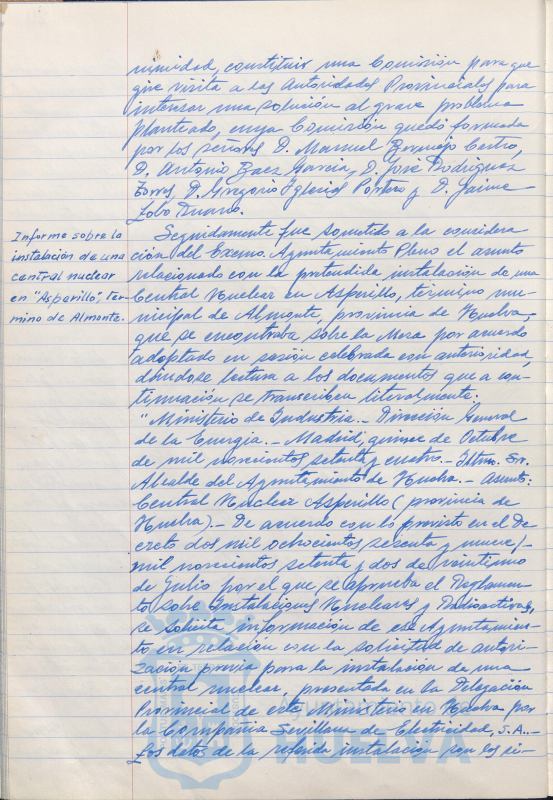 nimidad, constituir una Comisión para que
gire visita a las Autoridades Provinciales para
interesar una solución al grave problema
planteado, cuya Comisión quedó formada
por los señores D. Manuel Bermejo Cestro,
D. Antonio Baez Garcia, D. José Rodriguez
Torres, D. Gregorio Iglesias Portero y D. Jaime
Lobo
Informe sobre la
instalación de una
central nuclear
en "Asperillo", tér-
mino de Almonte.
Seguidamente fue sometido a la considera
ción del Excmo. Ayuntamiento Pleno el asunto
relacionado con la pretendida instalación de una
Central Nuclear en Asperillo, término mu-
nicipal de Almonte, provincia de Huelva,
que se encontraba sobre la Mesa por acuerdo
adoptado en sesión celebrada con anterioridad,
dándose lectura a los documentos que a con-
tinuación se transcriben literalmente:
"Ministerio de Industria.- Dirección General
de la Energía.- Madrid, quince de Octubre
de mil novecientos setenta y cuatro.- Iltmo. Sr.
Alcalde del Ayuntamiento de Huelva.- Asunto:
Central Nuclear Asperillo (provincia de
Huelva).- De acuerdo con lo previsto en el De
creto dos mil ochocientos sesenta y nueve/-
mil novecientos setenta y dos de veintiuno
de Julio por el que se aprueba el Reglamen-
to sobre Instalaciones Nucleares y Radioactivas,
se solicita información de ese Ayuntamien-
to en relación con la solicitud de autori-
zación previa para la instalación de una
central nuclear, presentada en la Delegación
Provincial de este Ministerio en Huelva por
la Compañia Sevillana de Electricidad, S.A..-
Los datos de la referida instalación son los si-
HUELVA